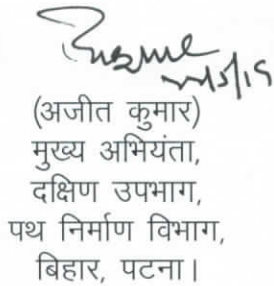 (अजीत कुमार)
मुख्य अभियंता,
दक्षिण उपभाग,
पथ निर्माण विभाग,
बिहार, पटना।